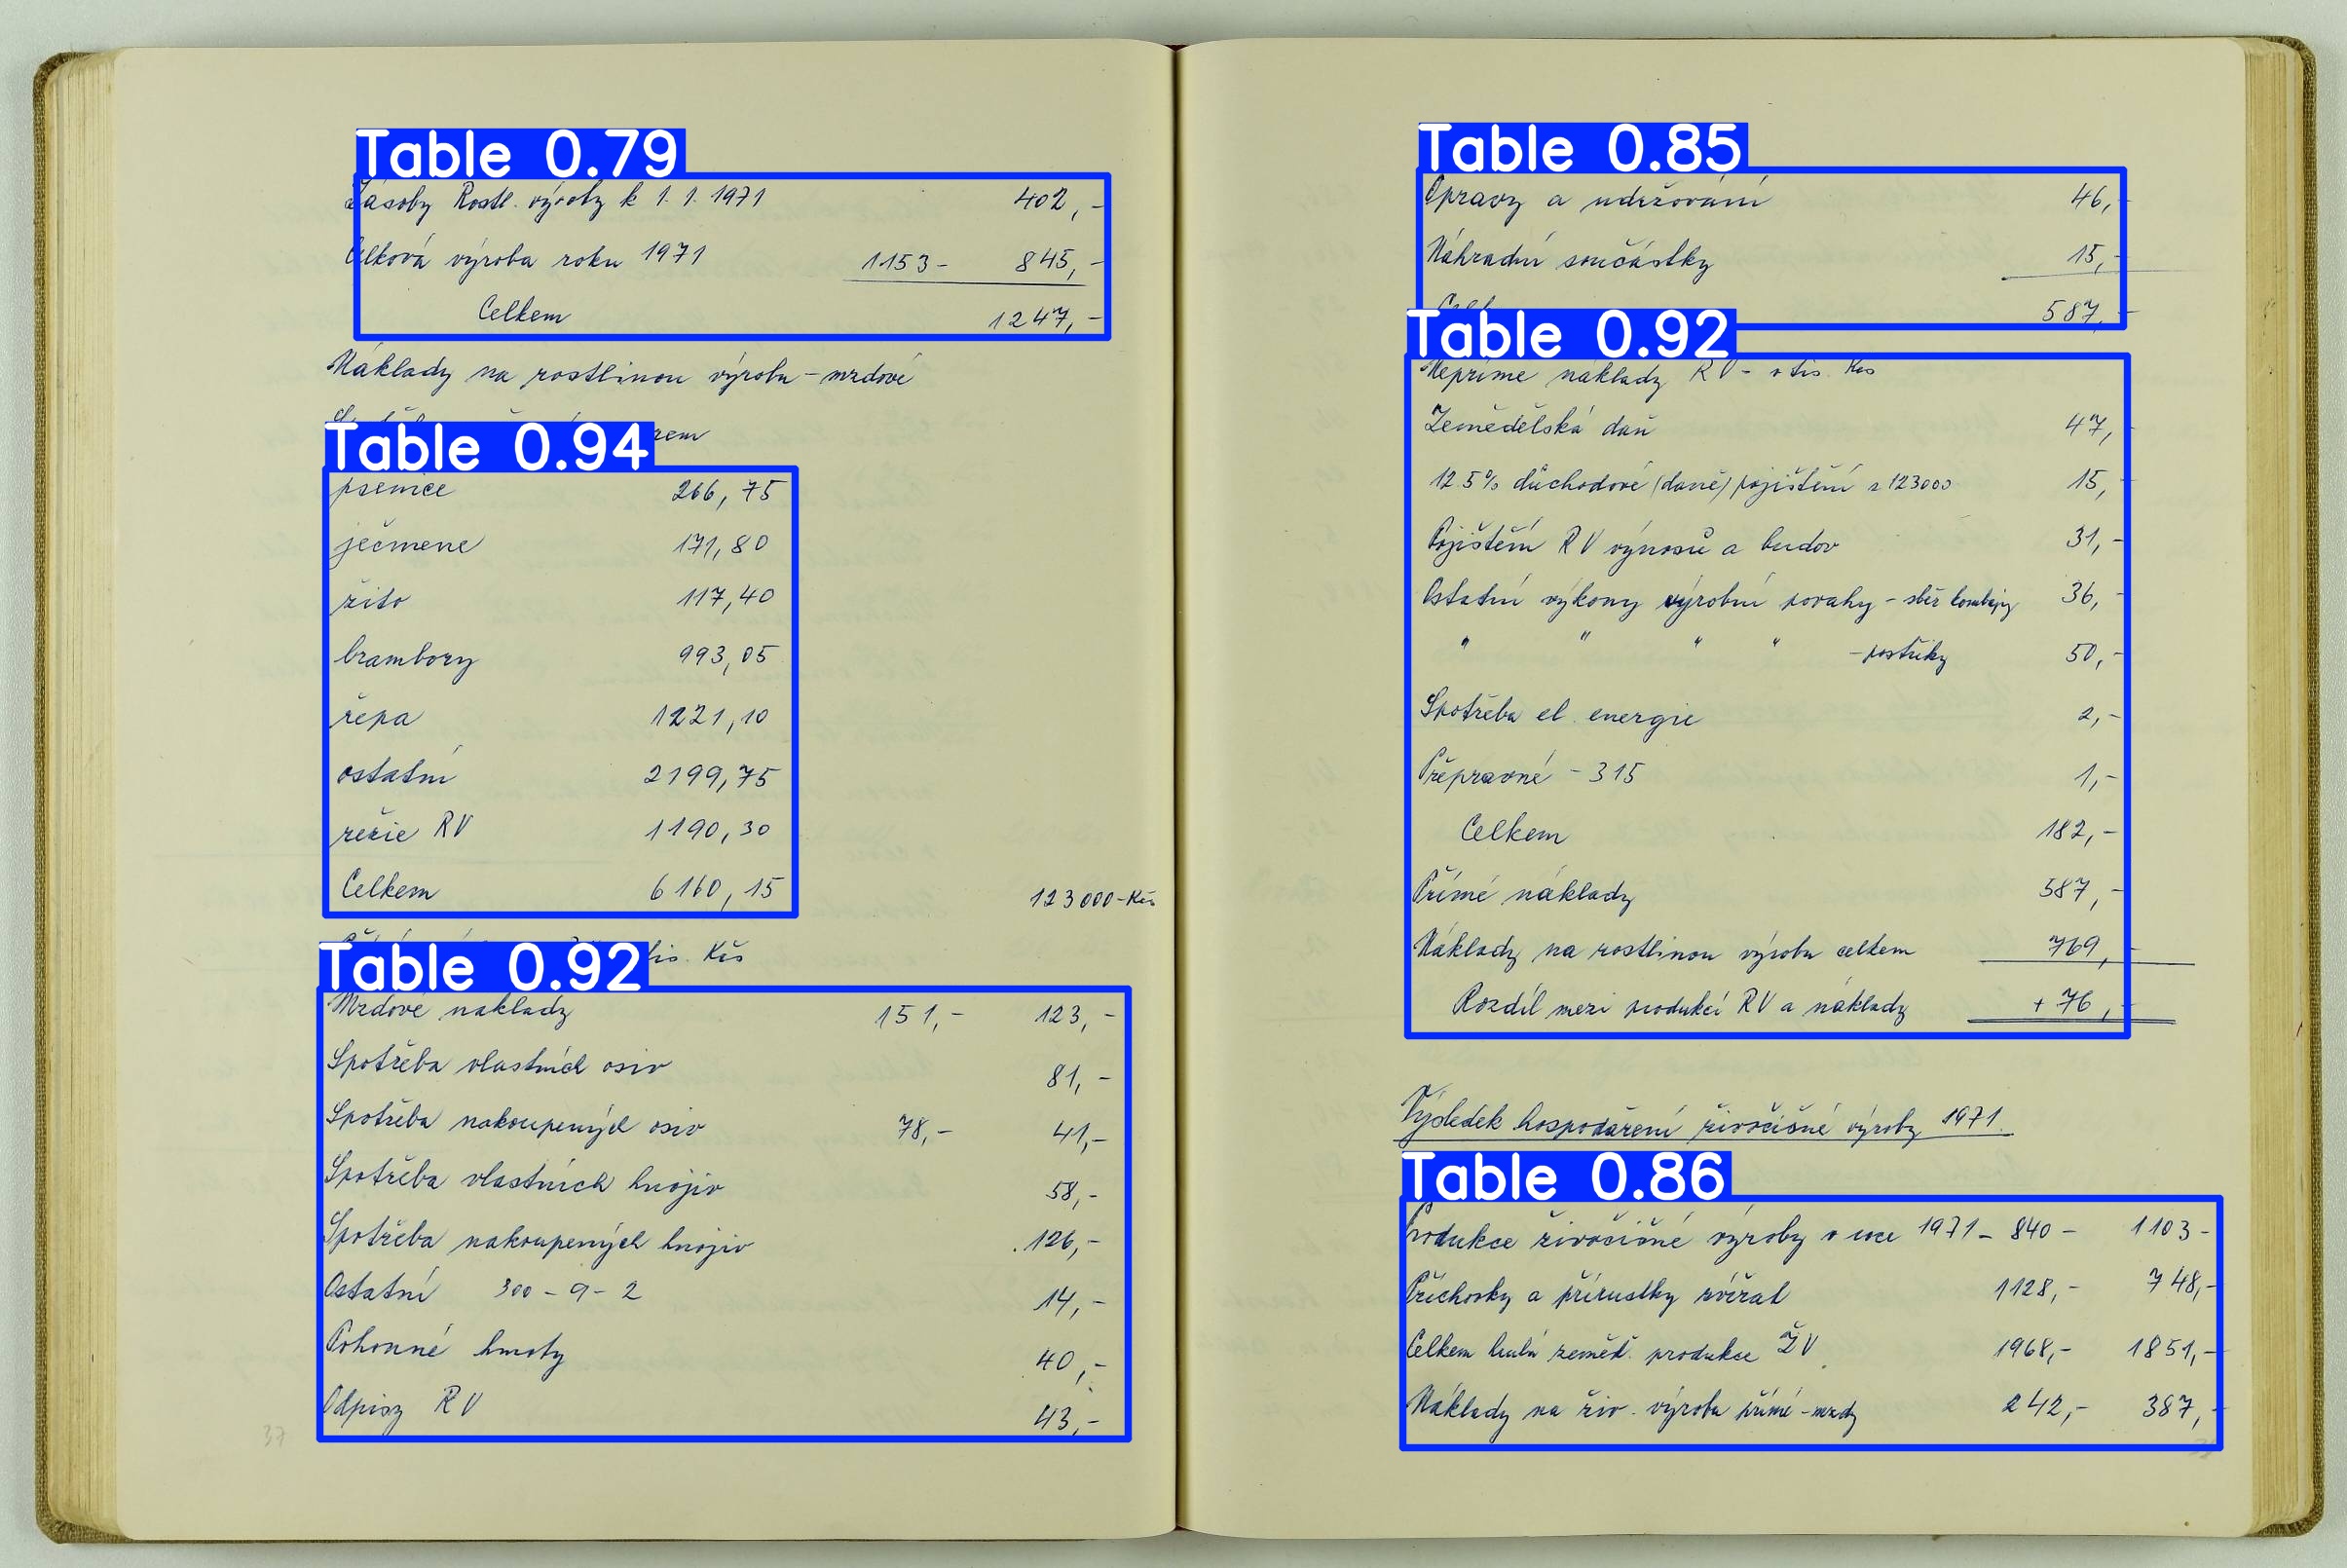 Table 0.79
Zásoby Rostl. výroby k 1. 1. 1971 402,-
Celková výroba roku 1971 1153- 845,-
Celkem 1247,-
Náklady na rostlinou výrobu - mzdové
Table 0.94
pšenice 266,75
ječmene 171,80
žito 117,40
brambory 993,05
řepa 1221,10
ostatní 2199,75
režie RV 1190,30
Celkem 6160,15 123000-Kčs
tis. Kčs
Table 0.92
Mzdové náklady 151,- 123,-
Spotřeba vlastních osiv 81,-
Spotřeba nakoupených osiv 78,- 41,-
Spotřeba vlastních hnojiv 58,-
Spotřeba nakoupených hnojiv 126,-
Ostatní 300-9-2 14,-
Pohonné hmoty 40,-
Odpisy RV 43,-
37
Table 0.85
Opravy a udržování 46,-
Náhradní součástky 15,-
587,-
Table 0.92
Nepříme náklady RV - v tis. Kčs
Zemědělská daň 47,-
12.5% důchodové (daně) pojištění z 123000 15,-
Pojištění RV výnosů a budov 31,-
Ostatní výkony výrobní povahy - sběr kombajny 36,-
" " " " - postřiky 50,-
Spotřeba el. energie 2,-
Přepravné - 315 1,-
Celkem 182,-
Přímé náklady 587,-
Náklady na rostlinou výrobu celkem 769,-
Rozdíl mezi produkcí RV a náklady + 76,-
Výsledek hospodaření živočišné výroby 1971.
Table 0.86
Produkce živočišné výroby v roce 1971 - 840 - 1103 -
Příchovky a přírustky zvířat 1128,- 748,-
Celkem hrubá zeměd. produkce ŽV 1968,- 1851,-
Náklady na živ. výrobu přímé - mzdy 242,- 387,-